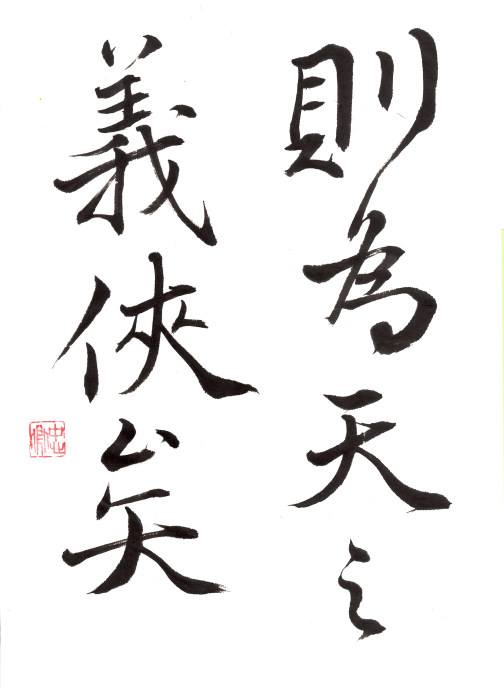 則為天之
義俠矣